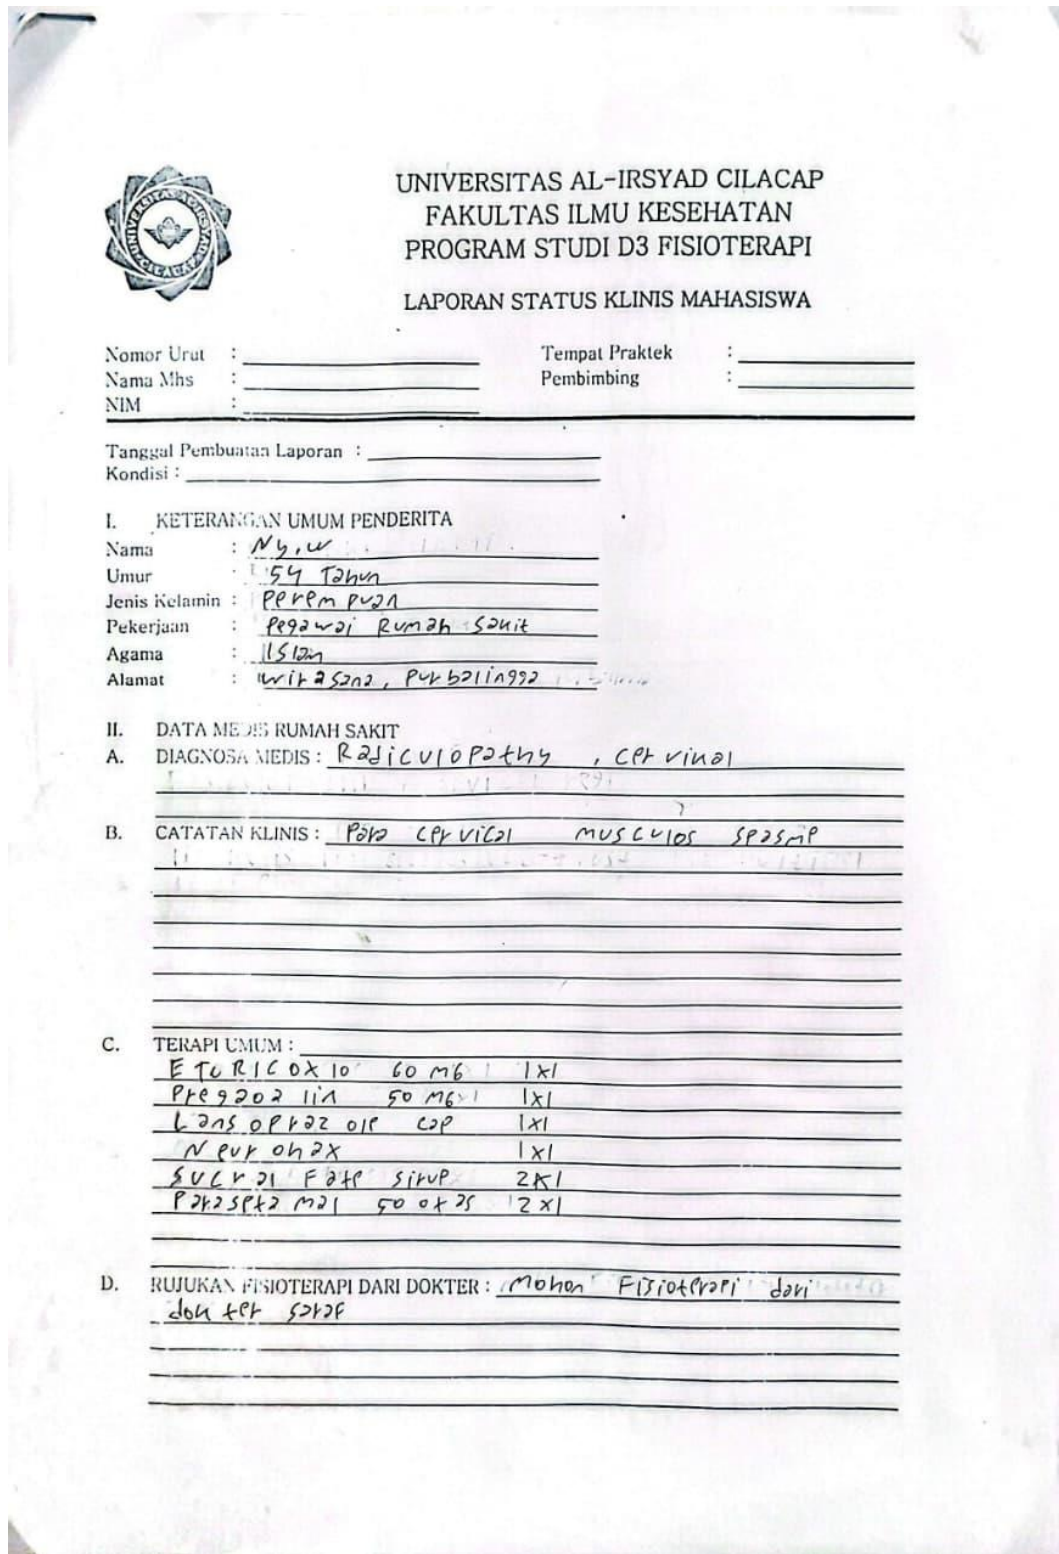 UNIVERSITAS AL-IRSYAD CILACAP
FAKULTAS ILMU KESEHATAN
PROGRAM STUDI D3 FISIOTERAPI
LAPORAN STATUS KLINIS MAHASISWA
Nomor Urut : Tempat Praktek :
Nama Mhs : Pembimbing :
NIM :
Tanggal Pembuatan Laporan :
Kondisi :
I. KETERANGAN UMUM PENDERITA
Nama : Ny. W
Umur : 54 Tahun
Jenis Kelamin : Perempuan
Pekerjaan : Pegawai Rumah Sakit
Agama : Islam
Alamat : Wirasana, Purbalingga
II. DATA MEDIS RUMAH SAKIT
A. DIAGNOSA MEDIS : Radiculopathy, cervikal
B. CATATAN KLINIS : Para cervical musculos spasme
C. TERAPI UMUM :
ETORICOXIO 60 MG 1x1
Pregaoalin 50 MG 1x1
Lansoprazole cap 1x1
Neurohax 1x1
Sucralfate sirup 2x1
Parasetamal 500 2x1
D. RUJUKAN FISIOTERAPI DARI DOKTER : Mohon Fisioterapi dari
dokter saraf